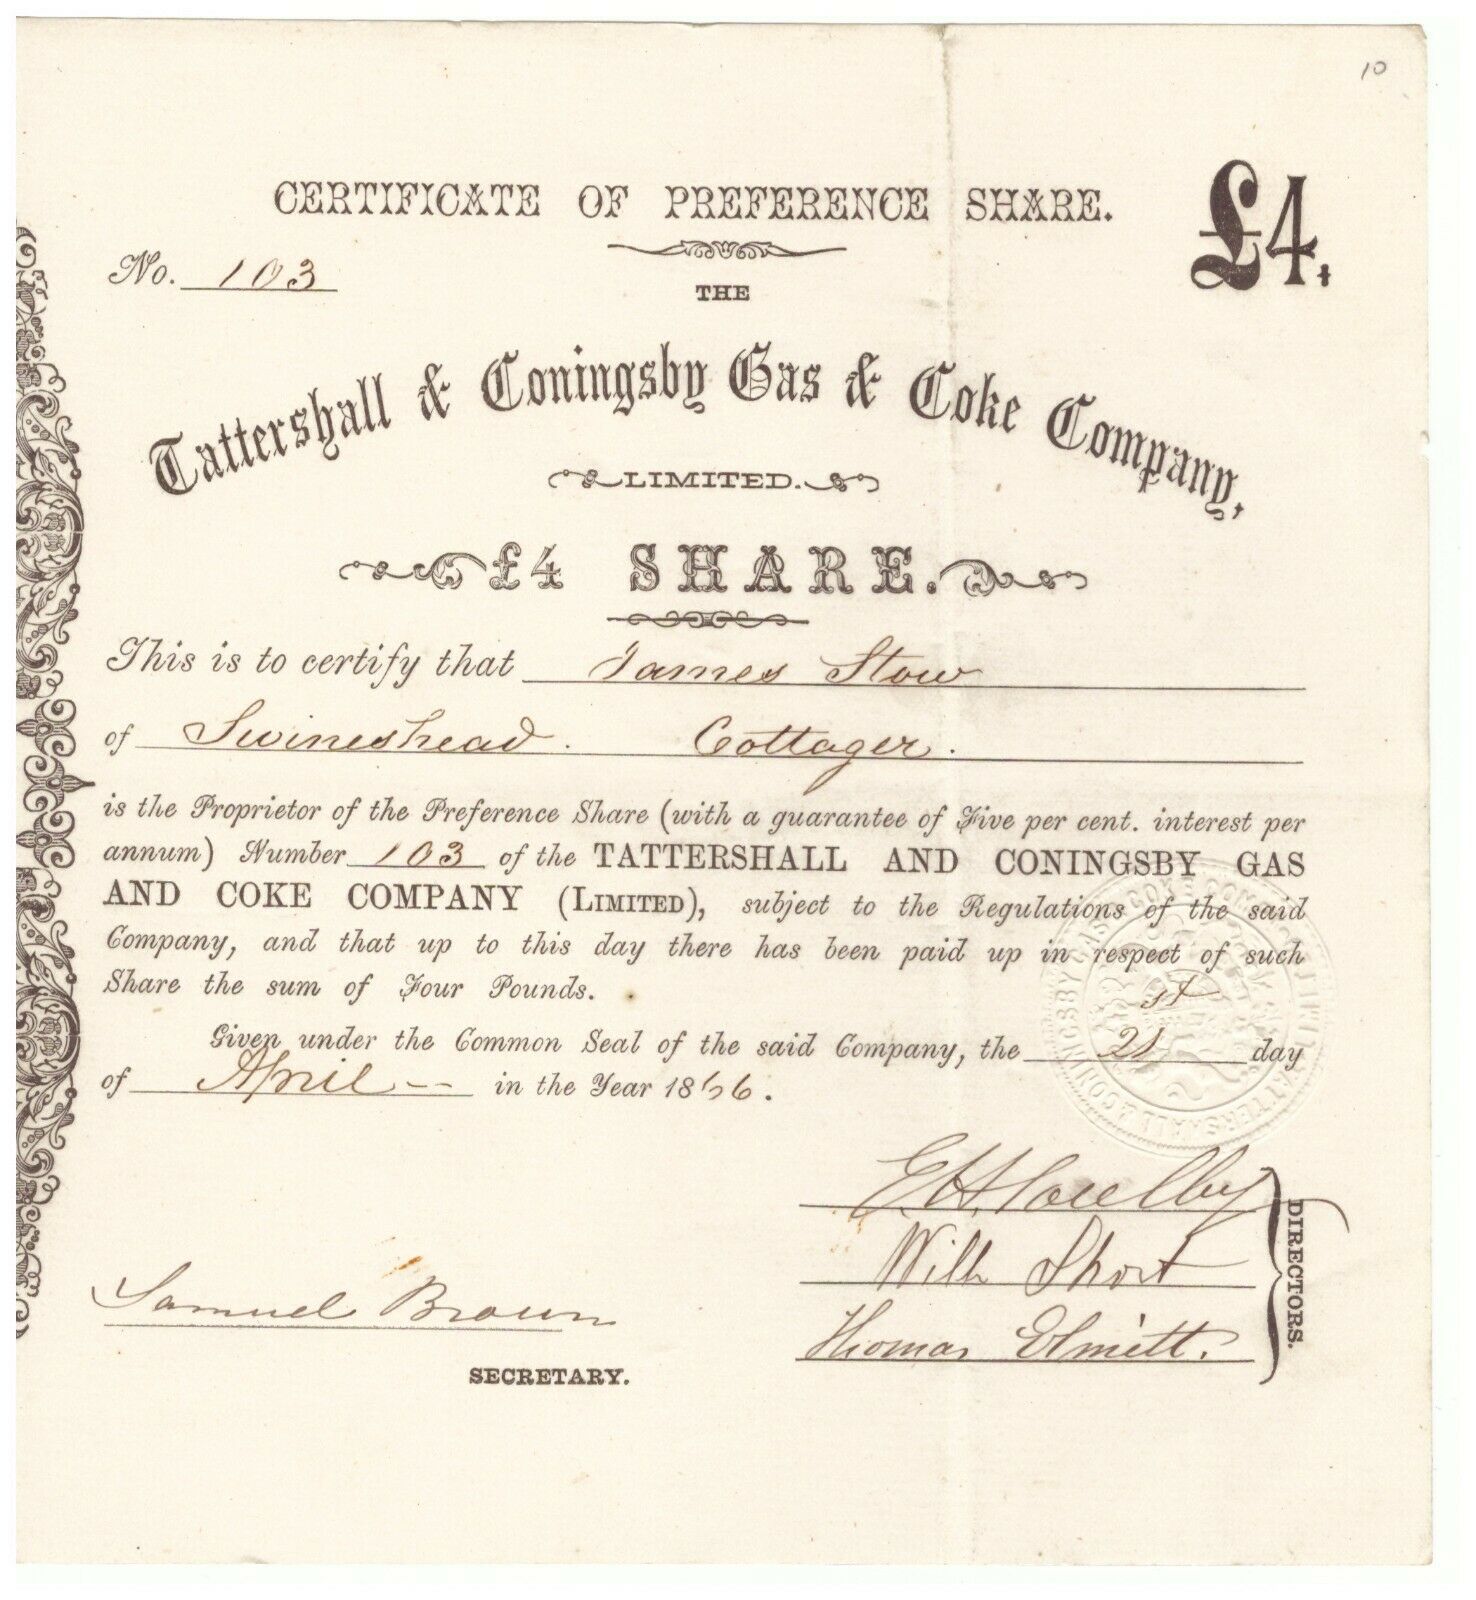 10
CERTIFICATE OF PREFERENCE SHARE.
£4.
No. 103
THE
Tattershall & Coningsby Gas & Coke Company,
LIMITED.
£4 SHARE.
This is to certify that James Stow
of Swineshead. Cottager.
is the Proprietor of the Preference Share (with a guarantee of Five per cent. interest per
annum) Number 103 of the TATTERSHALL AND CONINGSBY GAS
AND COKE COMPANY (LIMITED), subject to the Regulations of the said
Company, and that up to this day there has been paid up in respect of such
Share the sum of Four Pounds.
Given under the Common Seal of the said Company, the 21st day
of April -- in the Year 1866.
E. H.
Willm Short
Thomas Elmitt.
DIRECTORS.
Samuel Brown
SECRETARY.
TATTERSHALL & CONINGSBY GAS & COKE COMPANY LIMITED